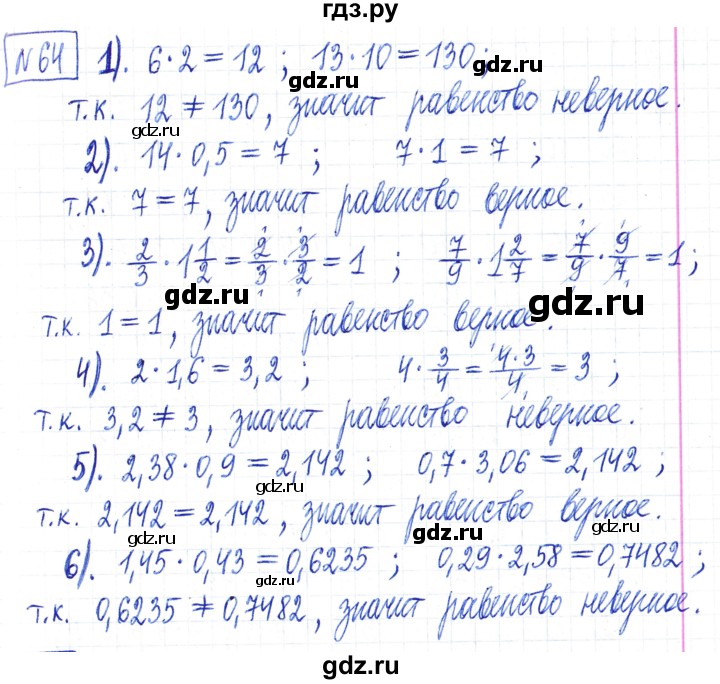 гдз.ру
№64 1). 6·2=12 ; 13·10=130;
gdz.ru gdz.ru
т.к. 12≠130, значит равенство неверное.
gdz.ru
2). 14·0,5=7 ; 7·1=7 ;
т.к. 7=7, значит равенство верное.
3). 2/3·1 1/2=2/3·3/2=1 ; 7/9·1 2/7=7/9·9/7=1;
gdz.ru gdz.ru
т.к. 1=1, значит равенство верное.
4). 2·1,6=3,2 ; 4·3/4=4·3/4=3 ;
gdz.ru
т.к. 3,2≠3, значит равенство неверное.
5). 2,38·0,9=2,142 ; 0,7·3,06=2,142 ;
gdz.ru
т.к. 2,142=2,142, значит равенство верное.
gdz.ru gdz.ru
6). 1,45·0,43=0,6235 ; 0,29·2,58=0,7482 ;
gdz.ru
т.к. 0,6235≠0,7482, значит равенство неверное.
gdz.ru
gdz.ru